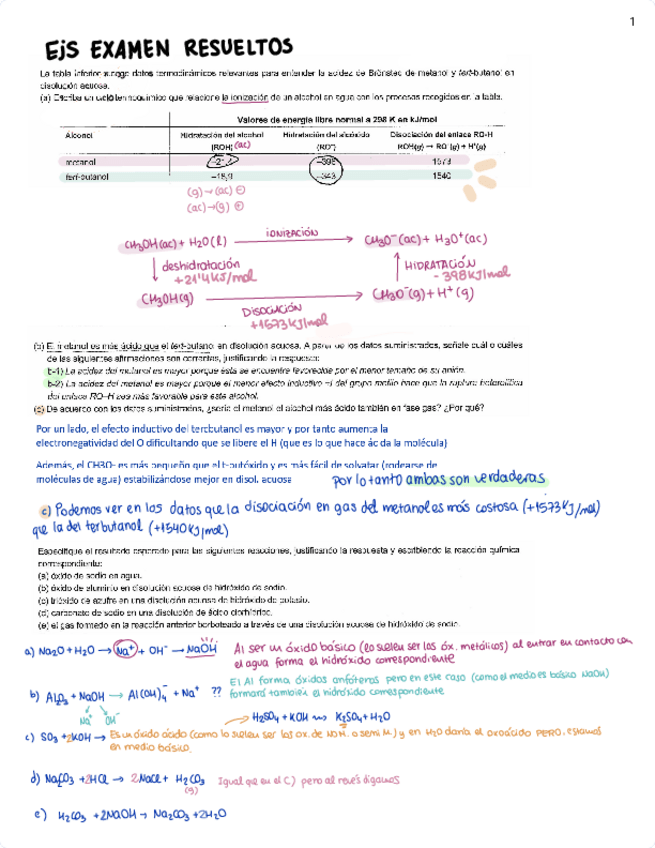 1
EJS EXAMEN RESUELTOS
La tabla inferior recoge datos termodinámicos relevantes para entender la acidez de Brönsted de metanol y tert-butanol en
disolución acuosa.
(a) Escriba un ciclo termoquímico que relacione la ionización de un alcohol en agua con los procesos recogidos en la tabla.
Valores de energía libre normal a 298 K en kJ/mol
Alcohol Hidratación del alcohol Hidratación del alcóxido Disociación del enlace RO-H
(ROH) (ac) (RO⁻) ROH(g) → RO⁻(g) + H⁺(g)
metanol −398 1573
tert-butanol −18,9 −343 1540
(g)→(ac) ⊖
(ac)→(g) ⊕
CH3OH(ac) + H2O(l) IONIZACIÓN → CH3O⁻(ac) + H3O⁺(ac)
↓ deshidratación ↑ HIDRATACIÓN
+21'4KJ/mol -398KJ/mol
CH3OH(g) → CH3O⁻(g) + H⁺(g)
DISOCIACIÓN
+1573KJ/mol
(b) El metanol es más ácido que el tert-butanol en disolución acuosa. A partir de los datos suministrados, señale cuál o cuáles
de las siguientes afirmaciones son correctas, justificando la respuesta:
b-1) La acidez del metanol es mayor porque ésta se encuentra favorecida por el menor tamaño de su anión.
b-2) La acidez del metanol es mayor porque el menor efecto inductivo +I del grupo metilo hace que la ruptura heterolítica
del enlace RO–H sea más favorable para este alcohol.
(c) De acuerdo con los datos suministrados, ¿sería el metanol el alcohol más ácido también en fase gas? ¿Por qué?
Por un lado, el efecto inductivo del tercbutanol es mayor y por tanto aumenta la
electronegatividad del O dificultando que se libere el H (que es lo que hace ác da la molécula)
Además, el CH3O- es más pequeño que el t-butóxido y es más fácil de solvatar (rodearse de
moléculas de agua) estabilizándose mejor en disol. acuosa por lo tanto ambas son verdaderas
c) Podemos ver en los datos que la disociación en gas del metanol es más costosa (+1573KJ/mol)
que la del terbutanol (+1540KJ/mol)
Especifique el resultado esperado para las siguientes reacciones, justificando la respuesta y escribiendo la reacción química
correspondiente:
(a) óxido de sodio en agua.
(b) óxido de aluminio en disolución acuosa de hidróxido de sodio.
(c) trióxido de azufre en una disolución acuosa de hidróxido de potasio.
(d) carbonato de sodio en una disolución de ácido clorhídrico.
(e) el gas formado en la reacción anterior borboteado a través de una disolución acuosa de hidróxido de sodio.
a) Na2O + H2O → Na⁺ + OH⁻ → NaOH Al ser un óxido básico (lo suelen ser los óx. metálicos) al entrar en contacto con
el agua forma el hidróxido correspondiente
El Al forma óxidos anfóteros pero en este caso (como el medio es básico NaOH)
b) Al2O3 + NaOH → Al(OH)4⁻ + Na⁺ ?? formará también el hidróxido correspondiente
Na⁺ OH⁻
H2SO4 + KOH → K2SO4 + H2O
c) SO3 + 2KOH → Es un óxido ácido (como lo suelen ser los ox. de NO M. o semi M.) y en H2O daría el oxoácido PERO, estamos
en medio básico.
d) Na2CO3 + 2HCl → 2NaCl + H2CO3 Igual que en el C) pero al revés digamos
(g)
e) H2CO3 + 2NaOH → Na2CO3 + 2H2O